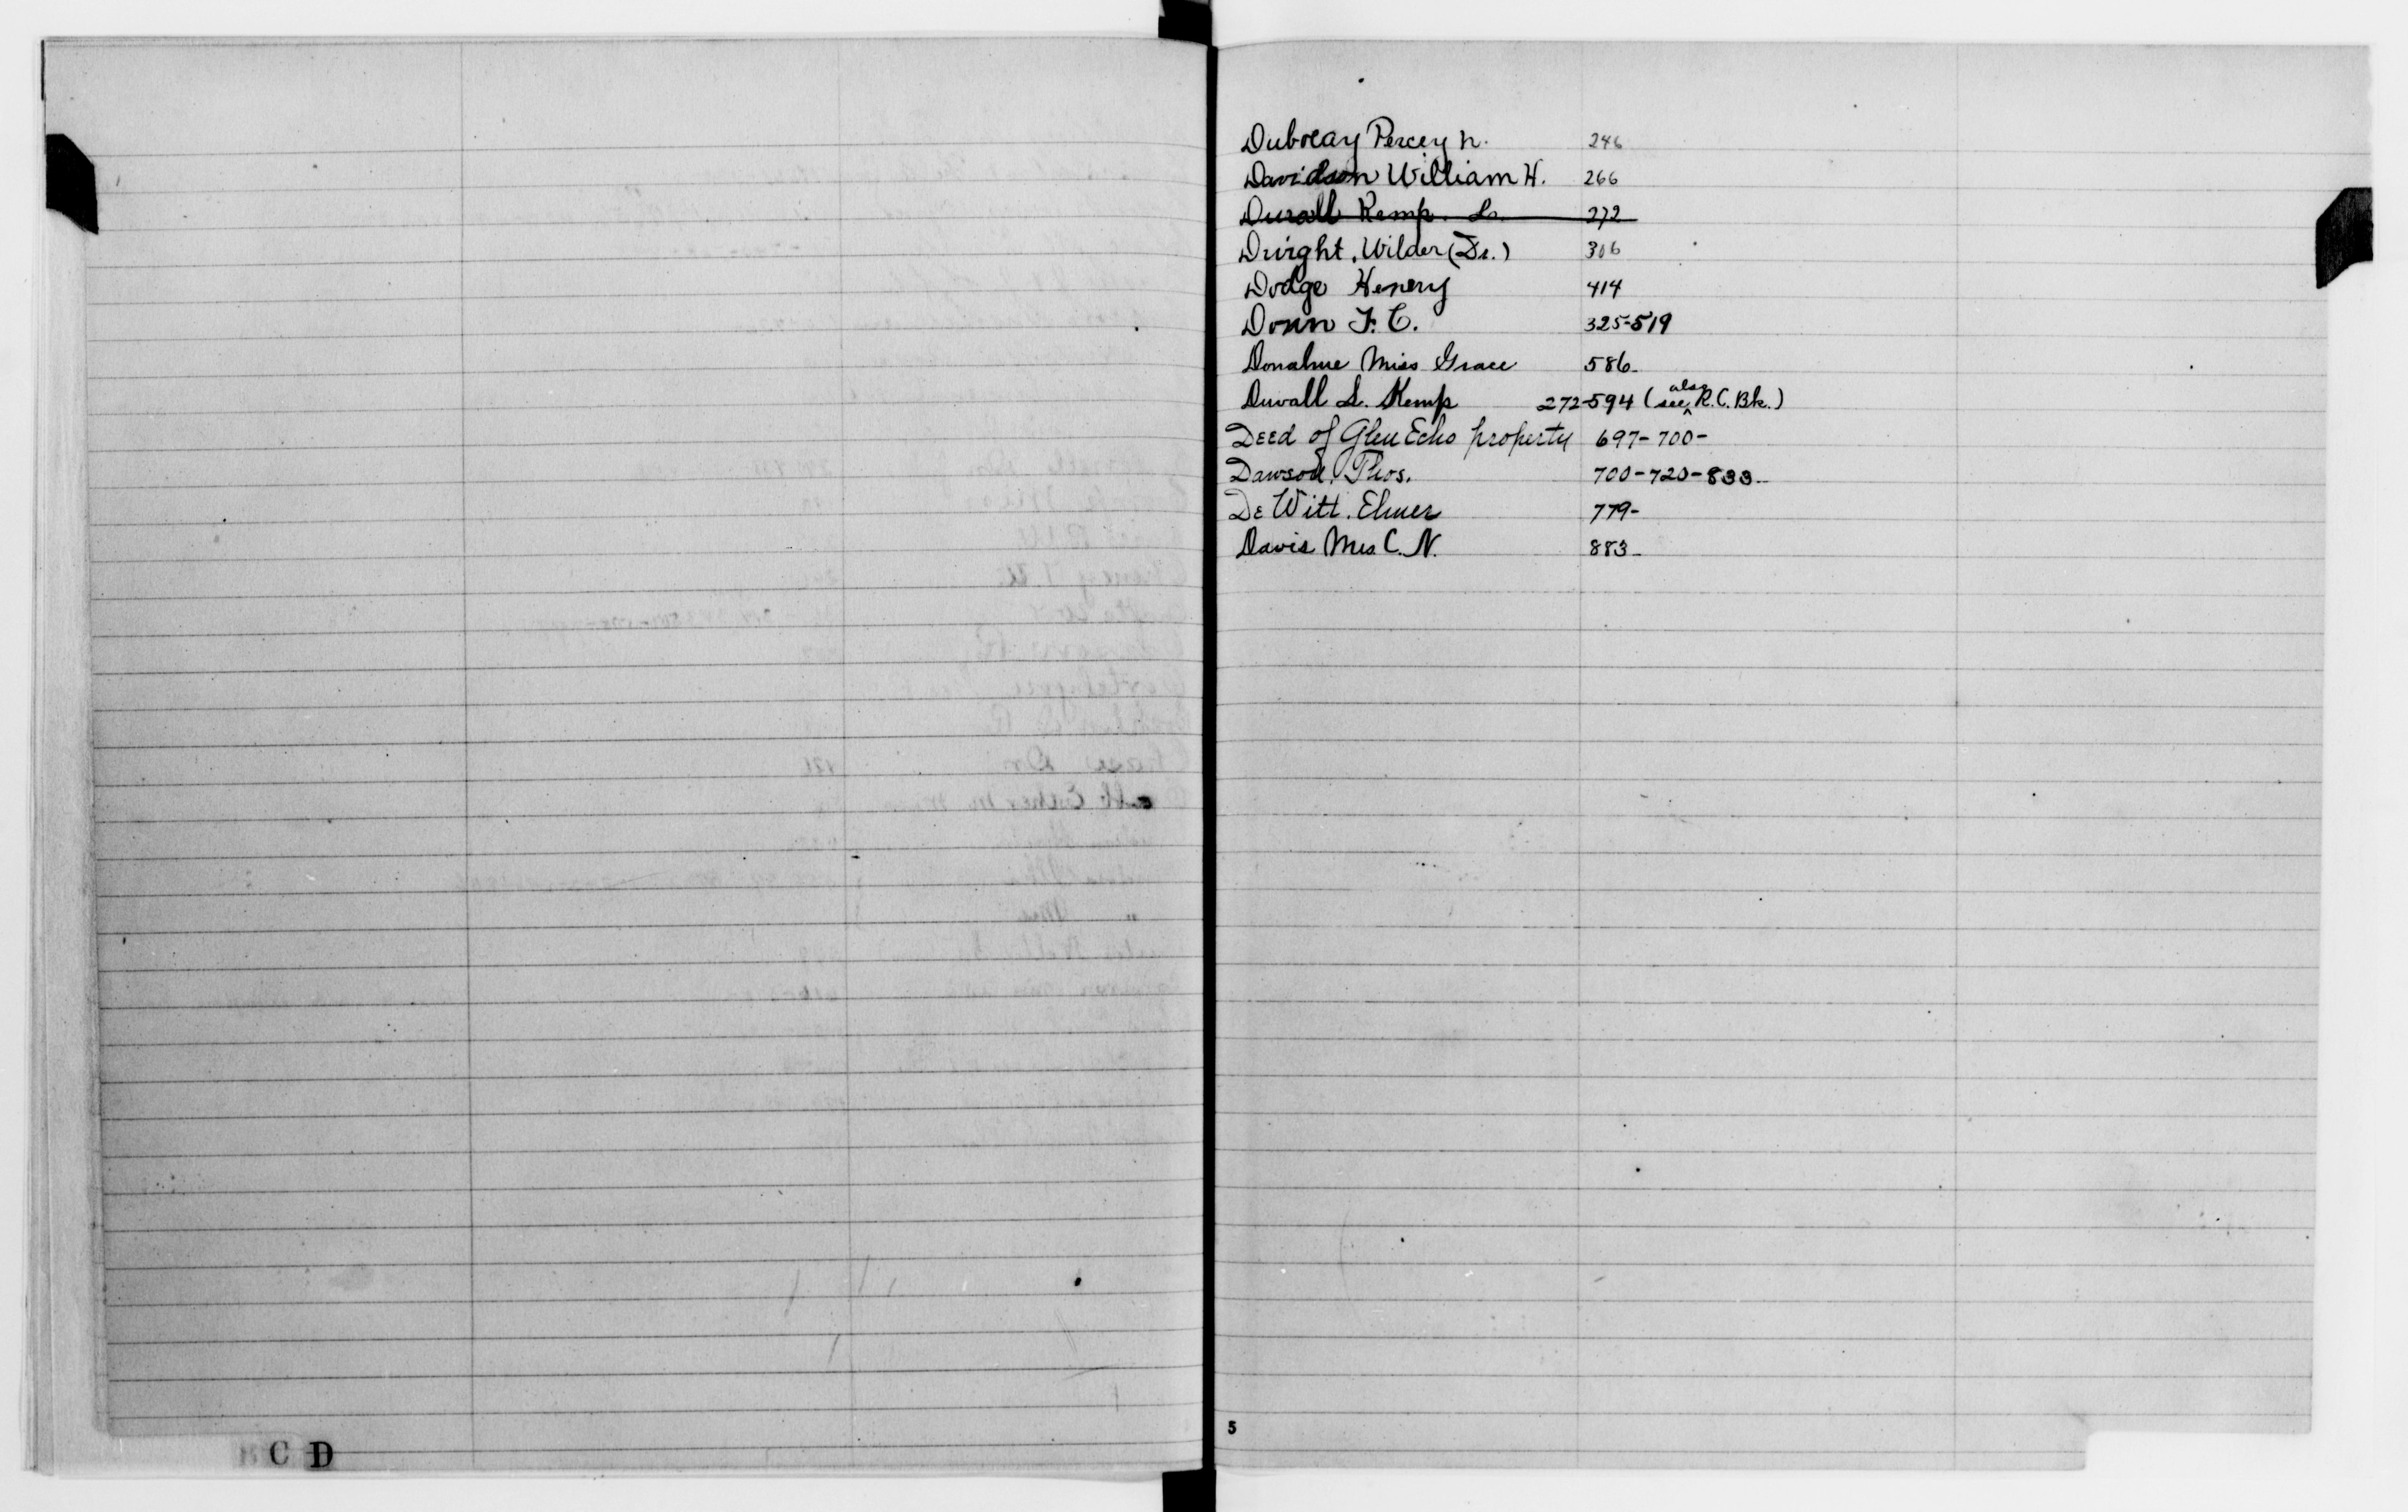 Dubreay Percey N. 246
Davidson William H. 266
Duvall Kemp. L. 272
Dwight, Wilder (Dr.) 306
Dodge Henery 414
Donn F. C. 325-519
Donahue Miss Grace 586-
Duvall L. Kemp 272-594 (see also R.C. Bk.)
Deed of Glen Echo property 697-700-
Dawson, Thos. 700-720-833-
De Witt. Elmer 779-
Davis Mrs C. N. 883-
5
C D